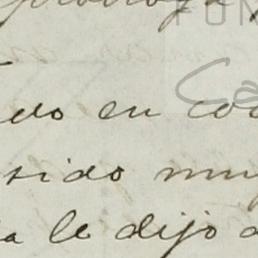 FUN
Ca
do en co
sido mu
a le dijo a